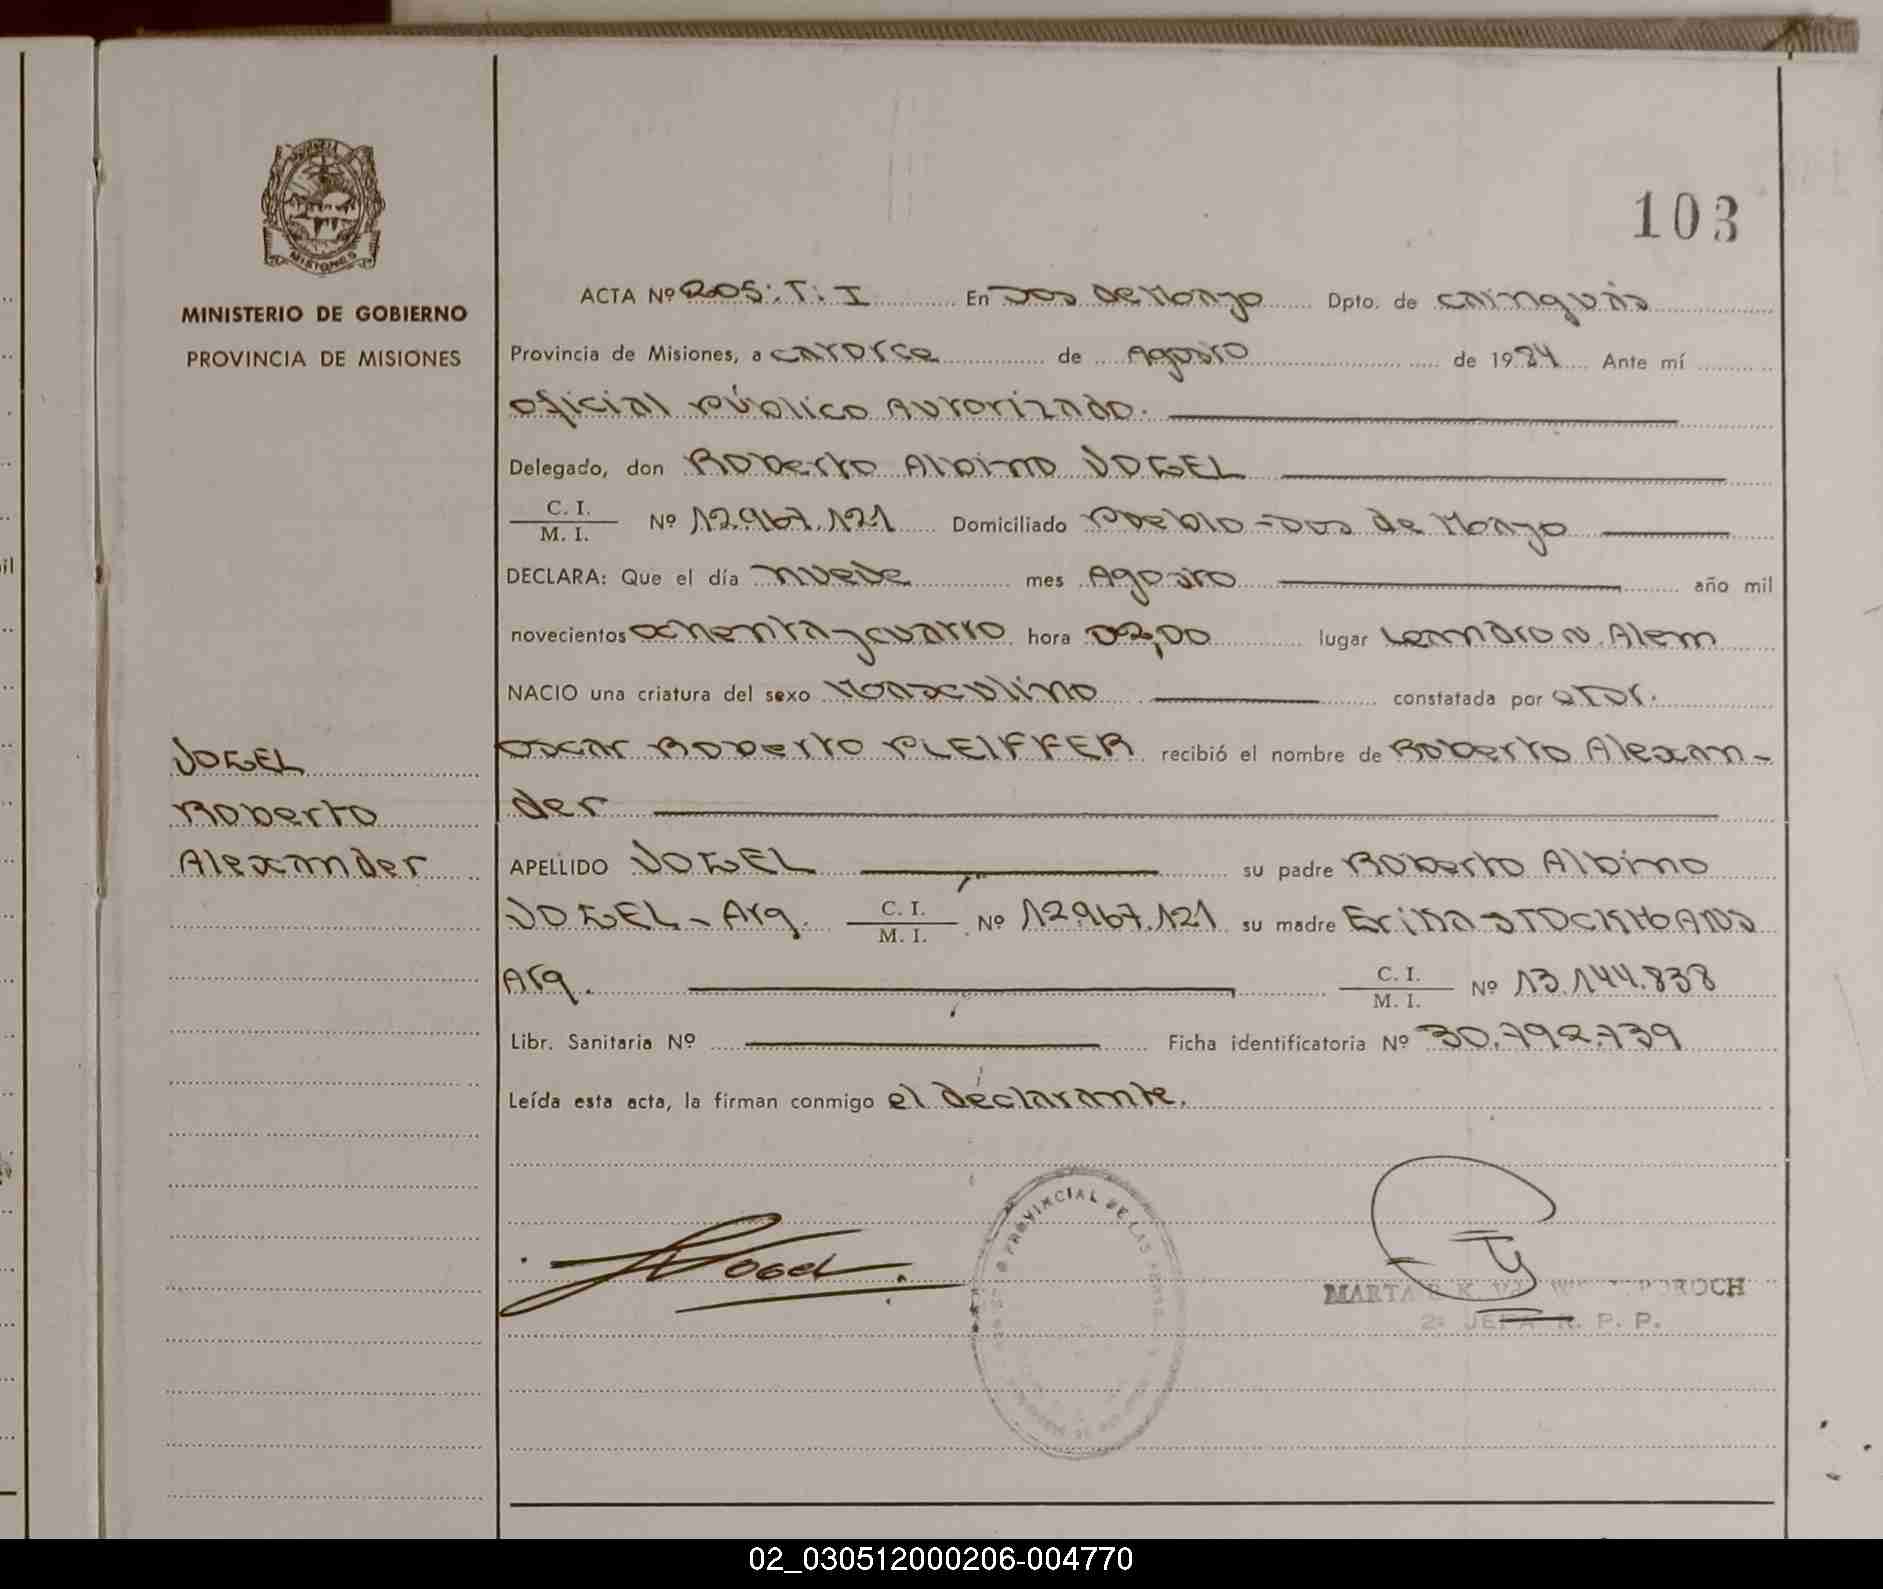 103
MISIONES
MINISTERIO DE GOBIERNO
PROVINCIA DE MISIONES
VOGEL
Roberto
Alexander
ACTA Nº 205: T: I En Dos de Mayo Dpto. de Cainguás
Provincia de Misiones, a catorce de Agosto de 1984 Ante mí
oficial Público Autorizado.
Delegado, don Roberto Albino VOGEL
C. I.
M. I. Nº 12.967.121 Domiciliado Pueblo - Dos de Mayo
DECLARA: Que el día nueve mes Agosto año mil
novecientos ochenta y cuatro hora 02,00 lugar Leandro N. Alem
NACIO una criatura del sexo Masculino constatada por
Oscar Roberto PLEIFFER recibió el nombre de Roberto Alexan-
der
APELLIDO VOGEL su padre Roberto Albino
VOGEL - Arg. C. I. M. I. Nº 12.967.121 su madre Erika
Arg. C. I. M. I. Nº 13.144.838
Libr. Sanitaria Nº Ficha identificatoria Nº 30.792.739
Leída esta acta, la firman conmigo el declarante.
Vogel
PROVINCIAL DE LAS
MARTA K. POROCH
2º JEFA R. P. P.
02_030512000206-004770